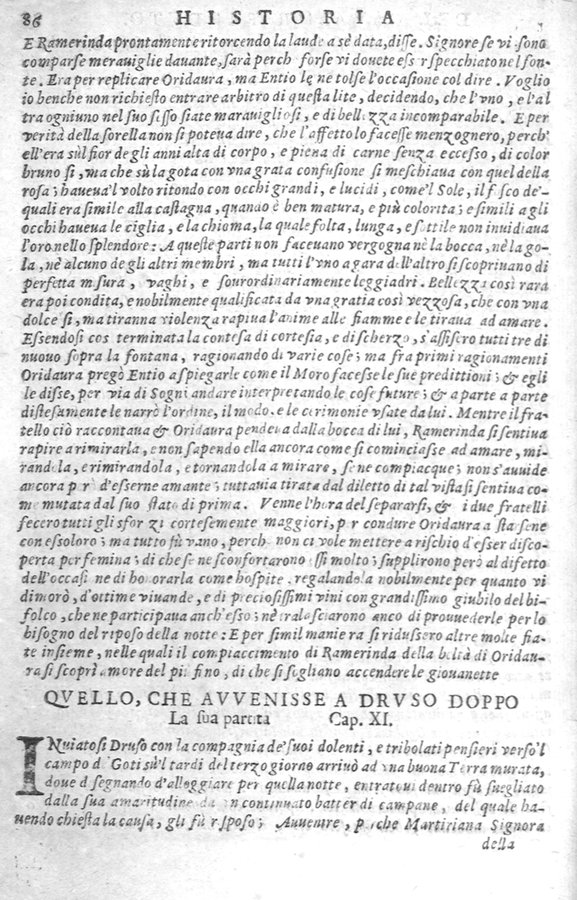 86 HISTORIA
E Ramerinda prontamente ritorcendo la laude a sè data, disse. Signore se vi sono
comparse merauiglie dauante, sarà perch forse vi douete ess r specchiato nel fon-
te. Era per replicare Oridaura, ma Entio le ne tolse l'occasione col dire. Voglio
io benche non richiesto entrare arbitro di questa lite, decidendo, che l'vno, e l'al
tra ogniuno nel suo sesso siate marauigliosi, e di bellezza incomparabile. E per
verità della sorella non si poteua dire, che l'affetto lo facesse menzognero, perch'
ell'era sùl fior degli anni alta di corpo, e piena di carne senza eccesso, di color
bruno sì, ma che sù la gota con vna grata confusione si meschiaua con quel della
rosa; haueua'l volto ritondo con occhi grandi, e lucidi, come'l Sole, il fosco de'
quali era simile alla castagna, quando è ben matura, e più colorita; e simili a gli
occhi haueua le ciglia, e la chioma, la quale folta, lunga, e sottile non inuidiaua
l'oro nello splendore: A queste parti non faceuano vergogna nè la bocca, nè la go-
la, nè alcuno de gli altri membri, ma tutti l'vno a gara dell'altro si scopriuano di
perfetta misura, vaghi, e sourordinariamente leggiadri. Bellezza così rara
era poi condita, e nobilmente qualificata da vna gratia così vezzosa, che con vna
dolce sì, ma tiranna violenza rapiua l'anime alle fiamme e le tiraua ad amare.
Essendosi cos terminata la contesa di cortesia, e di scherzo, s'assisero tutti tre di
nuouo sopra la fontana, ragionando di varie cose; ma fra primi ragionamenti
Oridaura pregò Entio a spiegarle come il Moro facesse le sue predittioni; & egli
le disse, per via di Sogni andare interpretando le cose future; & a parte a parte
distesamente le narrò l'ordine, il modo, e le cerimonie vsate da lui. Mentre il fra-
tello ciò raccontaua & Oridaura pendeua dalla bocca di lui, Ramerinda si sentiua
rapire a rimirarla, e non sapendo ella ancora come si cominciasse ad amare, mi-
randola, e rimirandola, e tornandola a mirare, se ne compiacque; non s'auuide
ancora p rò d'esserne amante; tuttauia tirata dal diletto di tal vista si sentiua co-
me mutata dal suo stato di prima. Venne l'hora del separarsi, & i due fratelli
fecero tutti gli sfor zi cortesemente maggiori, p r condure Oridaura a starsene
con essoloro; ma tutto fù vano, perch non ci vole mettere a rischio d'esser disco-
perta per femina; di che se ne sconfortarono essi molto; supplirono però al difetto
dell'occasi ne di honorarla come hospite, regalandola nobilmente per quanto vi
dimorò, d'ottime viuande, e di preciosissimi vini con grandissimo giubilo del bi-
folco, che ne participaua anch'esso; nè tralasciarono anco di prouuederle per lo
bisogno del riposo della notte: E per simil manie ra si ridussero altre molte fia-
te insieme, nelle quali il compiaccimento di Ramerinda della beltà di Oridau-
ra si scoprì amore del più fino, di che si sogliano accendere le giouanette
QVELLO, CHE AVVENISSE A DRVSO DOPPO
La sua partita Cap. XI.
INuiatosi Druso con la compagnia de' suoi dolenti, e tribolati pensieri verso'l
campo d Goti sù'l tardi del terzo giorno arriuò ad vna buona Terra murata,
doue d segnando d'alloggiare per quella notte, entratoui dentro fù suegliato
dalla sua amaritudine da vn continuato batter di campane, del quale ha-
uendo chiesta la causa, gli fù r sposo; Auuenire, perche Martiziana Signora
della